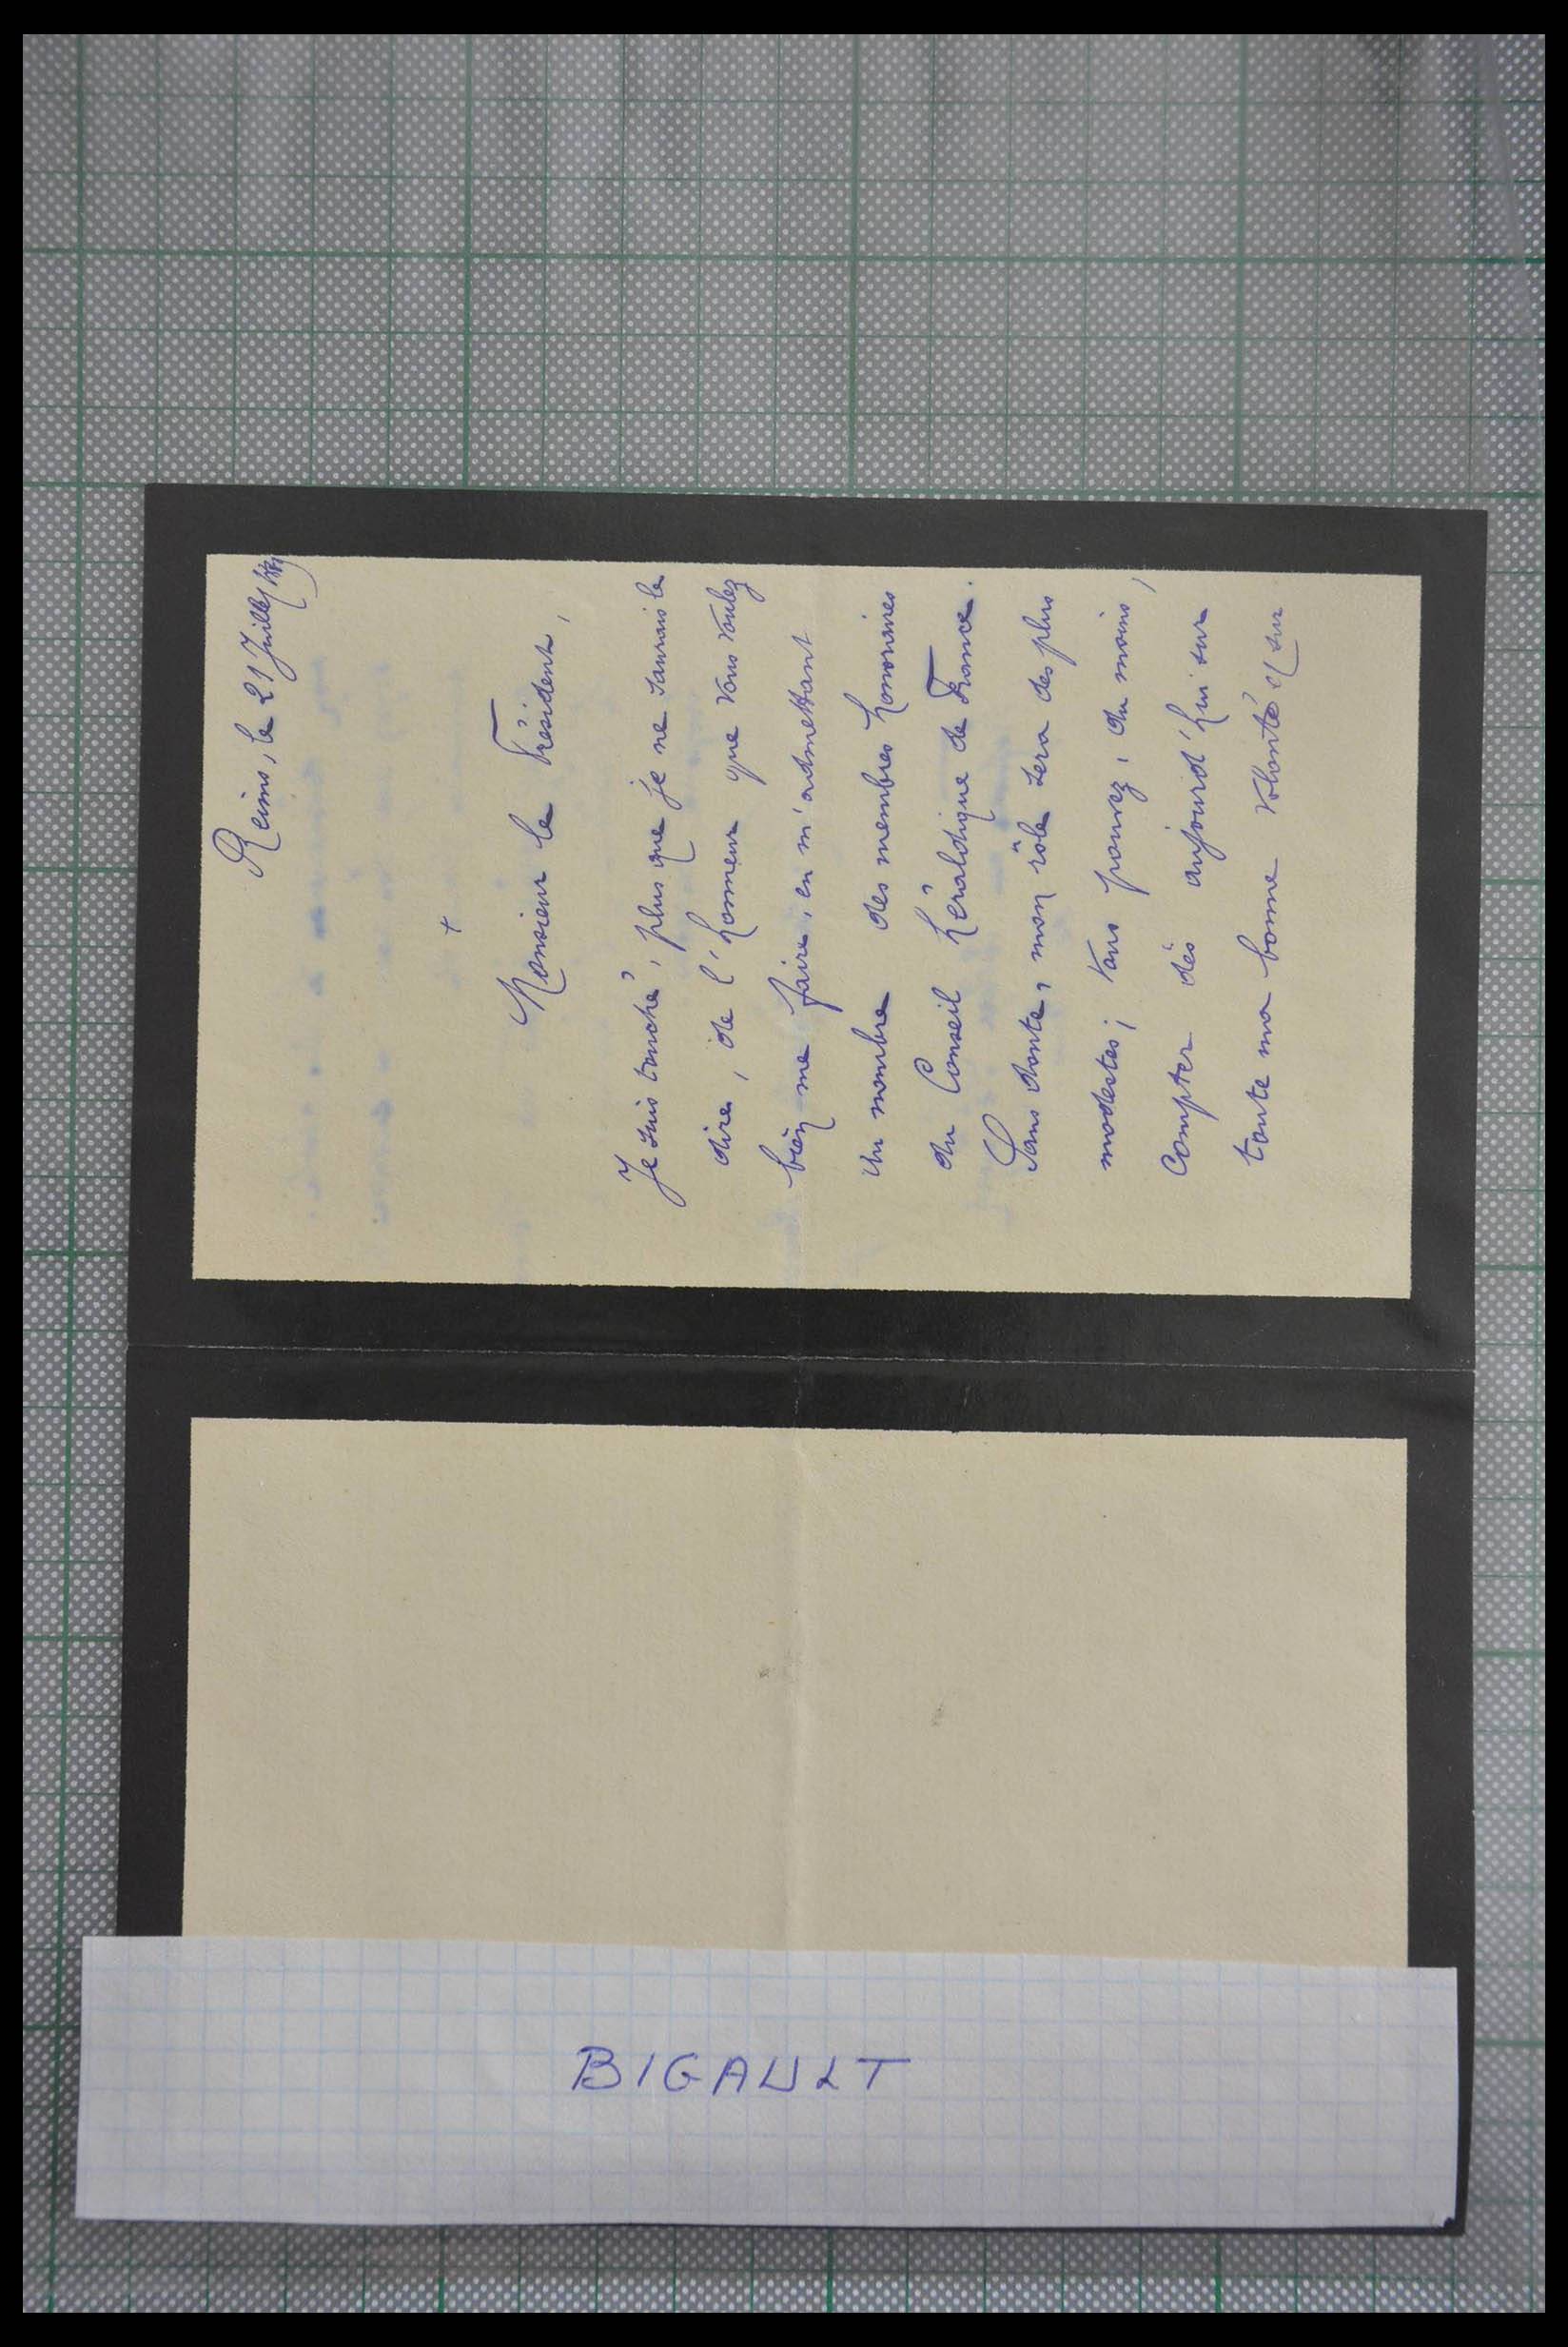 Reims, le 21 Juillet
+
Monsieur le Président,
Je suis touché, plus que je ne saurais le
dire, de l'honneur que vous voulez
bien me faire, en m'admettant
au nombre des membres honoraires
du Conseil héraldique de France.
Sans doute, mon rôle sera des plus
modestes; vous pouvez, du moins,
compter dès aujourd'hui sur
toute ma bonne volonté et sur
BIGAULT